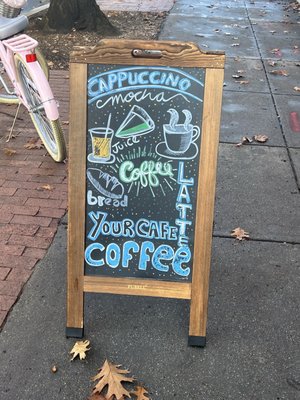 CAPPUCCINO
mocha
JUICE
Coffee
bread
LATTE
YOUR CAFE
COFFEE